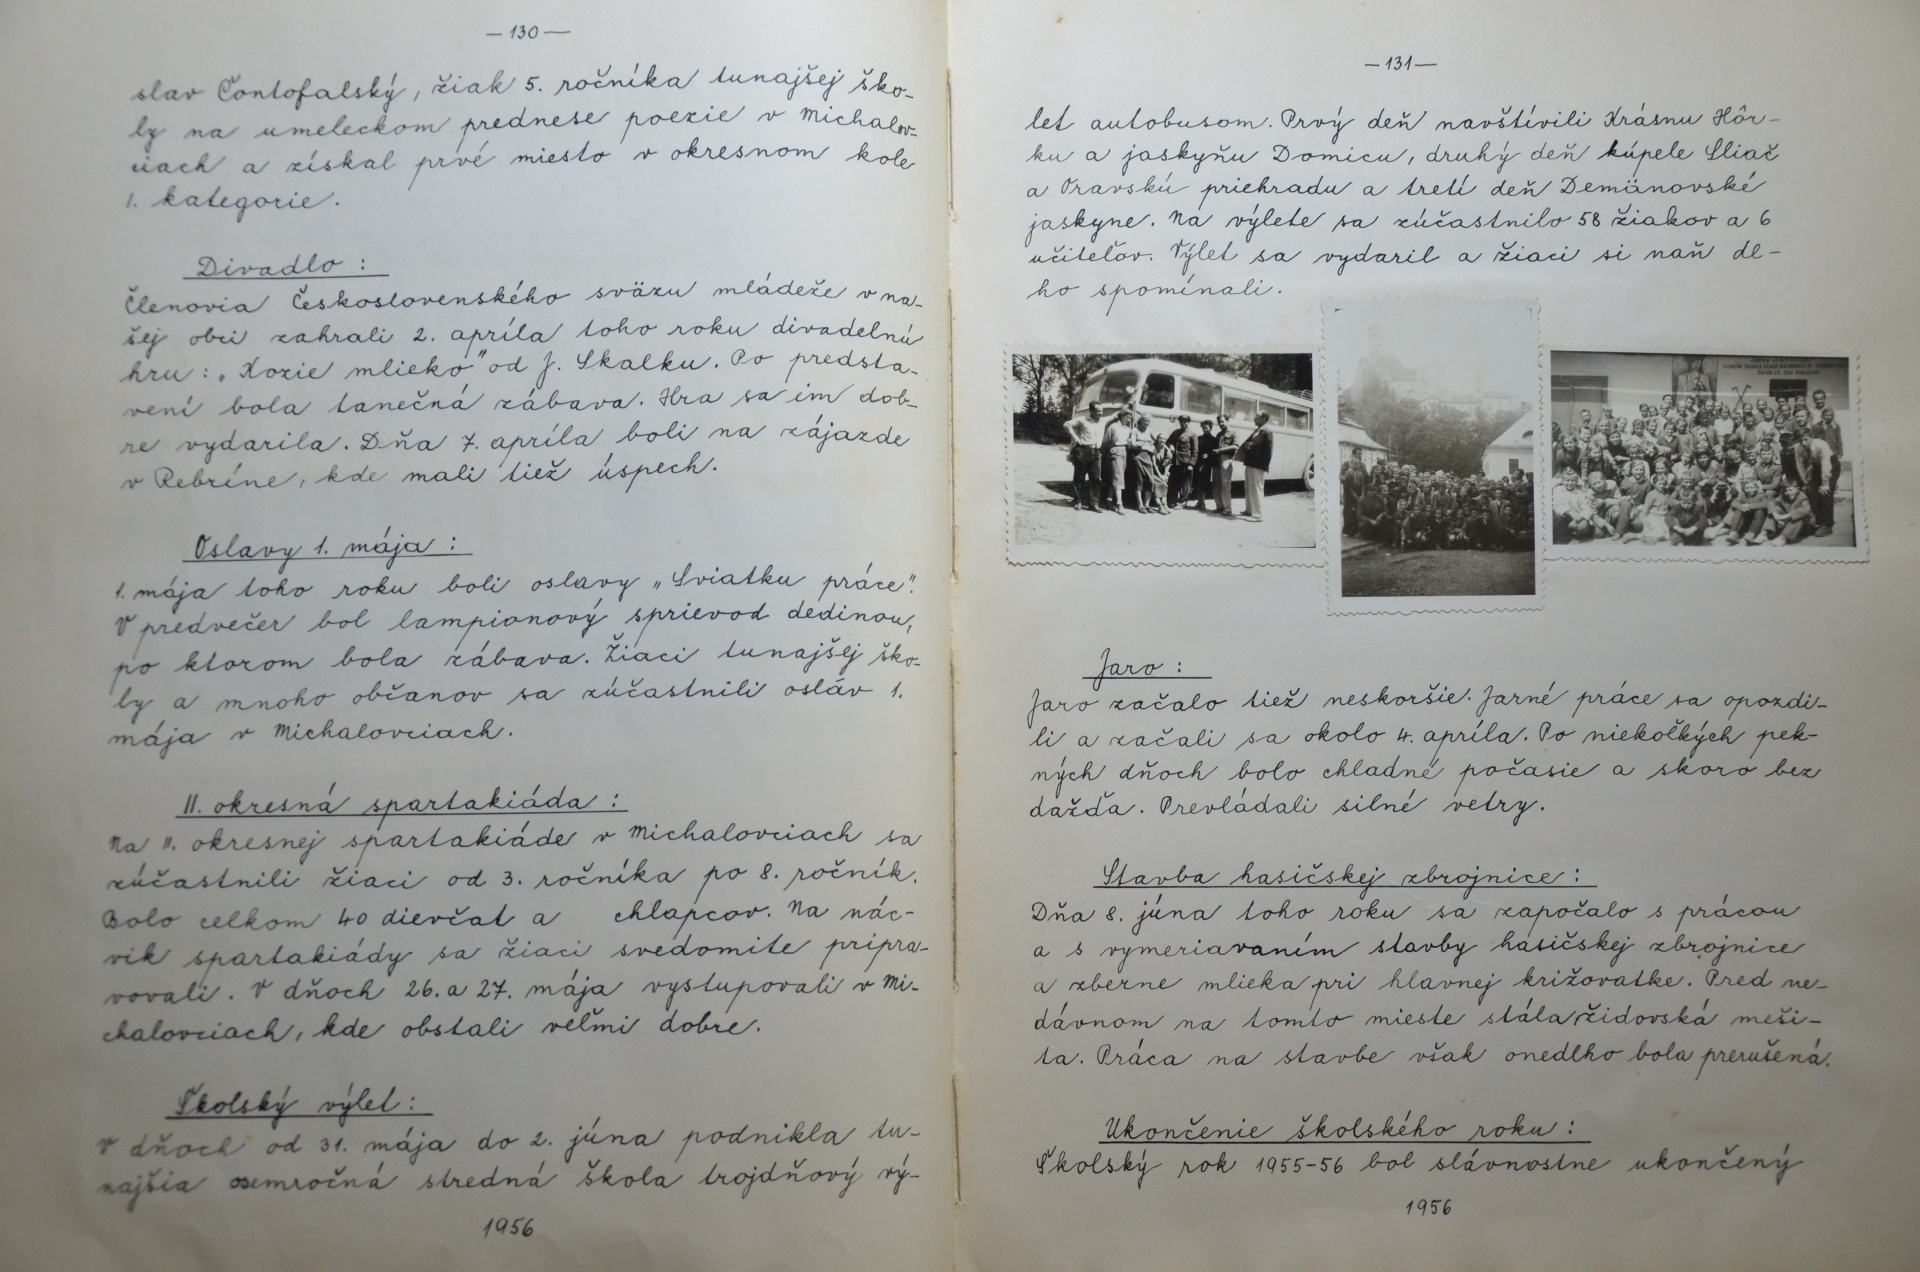 —130—
slav Čontofalský, žiak 5. ročníka tunajšej ško-
ly na umeleckom prednese poezie v Michalov-
ciach a získal prvé miesto v okresnom kole
1. kategorie.
Divadlo :
Členovia Československého sväzu mládeže v na-
šej obci zahrali 2. apríla toho roku divadelnú
hru : „Kozie mlieko" od J. Skalku. Po predsta-
vení bola tanečná zábava. Hra sa im dob-
re vydarila. Dňa 7. apríla boli na zájazde
v Rebríne, kde mali tiež úspech.
Oslavy 1. mája :
1. mája toho roku boli oslavy „Sviatku práce".
V predvečer bol lampionový sprievod dedinou,
po ktorom bola zábava. Žiaci tunajšej ško-
ly a mnoho občanov sa zúčastnili osláv 1.
mája v Michalovciach.
II. okresná spartakiáda :
Na II. okresnej spartakiáde v Michalovciach sa
zúčastnili žiaci od 3. ročníka po 8. ročník.
Bolo celkom 40 dievčat a chlapcov. Na nác-
vik spartakiády sa žiaci svedomite pripra-
vovali. V dňoch 26. a 27. mája vystupovali v Mi-
chalovciach, kde obstali veľmi dobre.
Školský výlet :
V dňoch od 31. mája do 2. júna podnikla tu-
najšia osemročná stredná škola trojdňový vý-
1956
—131—
let autobusom. Prvý deň navštívili Krásnu Hôr-
ku a jaskyňu Domicu, druhý deň kúpele Sliač
a Oravskú priehradu a tretí deň Demänovské
jaskyne. Na výlete sa zúčastnilo 58 žiakov a 6
učiteľov. Výlet sa vydaril a žiaci si naň dl-
ho spomínali.
Jaro :
Jaro začalo tiež neskoršie. Jarné práce sa opozdi-
li a začali sa okolo 4. apríla. Po niekoľkých pek-
ných dňoch bolo chladné počasie a skoro bez
dažďa. Prevládali silné vetry.
Stavba hasičskej zbrojnice :
Dňa 8. júna toho roku sa započalo s prácou
a s vymeriavaním stavby hasičskej zbrojnice
a zberne mlieka pri hlavnej križovatke. Pred ne-
dávnom na tomto mieste stála židovská meši-
ta. Práca na stavbe však onedlho bola prerušená.
Ukončenie školského roku :
Školský rok 1955-56 bol slávnostne ukončený
1956